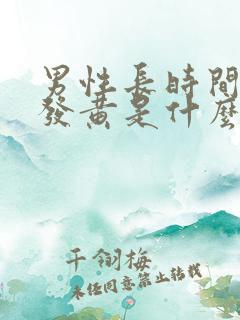 男性長時間
發黃是什麼
千翎梅
未经同意禁止转载